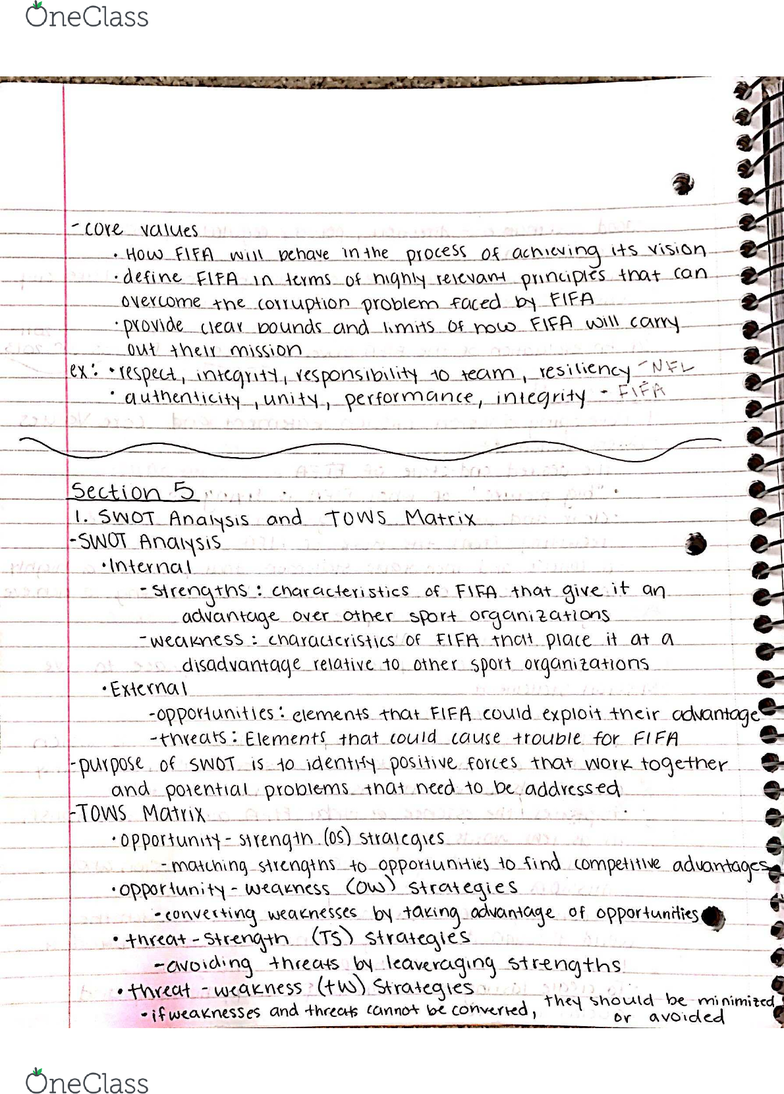 OneClass
- core values
• How FIFA will behave in the process of achieving its vision
• define FIFA in terms of highly relevant principles that can
overcome the corruption problem faced by FIFA
• provide clear bounds and limits of how FIFA will carry
out their mission
ex: • respect, integrity, responsibility to team, resiliency - NFL
• authenticity, unity, performance, integrity - FIFA
Section 5
1. SWOT Analysis and TOWS Matrix
- SWOT Analysis
• Internal
- strengths: characteristics of FIFA that give it an
advantage over other sport organizations
- weakness: characteristics of FIFA that place it at a
disadvantage relative to other sport organizations
• External
- opportunities: elements that FIFA could exploit their advantage
- threats: Elements that could cause trouble for FIFA
- purpose of SWOT is to identify positive forces that work together
and potential problems that need to be addressed
- TOWS Matrix
• opportunity - strength (OS) strategies
- matching strengths to opportunities to find competitive advantages
• opportunity - weakness (OW) strategies
- converting weaknesses by taking advantage of opportunities
• threat - strength (TS) strategies
- avoiding threats by leaveraging strengths
• threat - weakness (TW) strategies
• if weaknesses and threats cannot be converted, they should be minimized
or avoided
OneClass